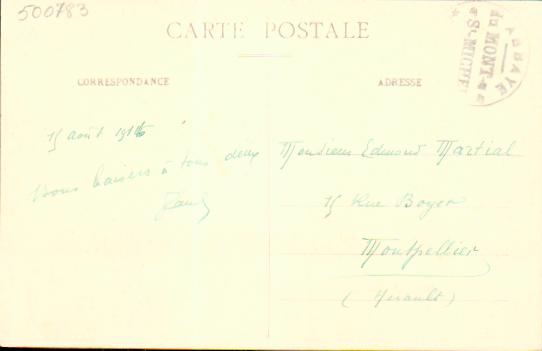 500783
CARTE POSTALE
ABBAYE
du MONT-
St-MICHEL
CORRESPONDANCE
ADRESSE
15 août
Bons baisers à tous deux
Monsieur Edmond Martial
15 Rue Boyer
Montpellier
(Hérault)